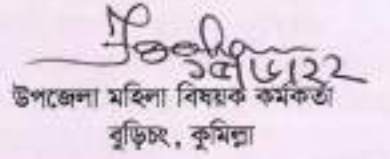 উপজেলা মহিলা বিষয়ক কর্মকর্তা
বুড়িচং, কুমিল্লা